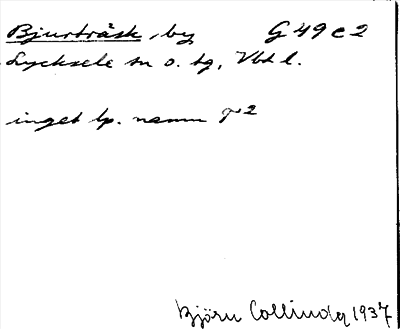 Bjurträsk, by G 49 c 2
Lycksele sn o. tg, Vbt l.
inget lp. namn
Björn Collinder 1937